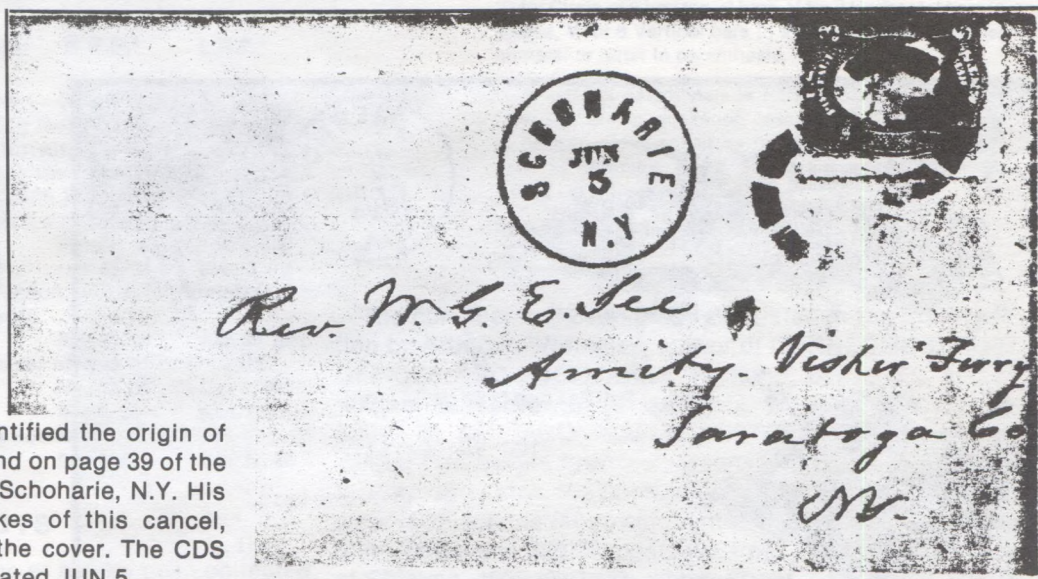 SCHOHARIE
JUN
5
N.Y
Rev. W. G. E. See
Amity. Visher Ferry
Saratoga Co
N.Y.
ntified the origin of
nd on page 39 of the
Schoharie, N.Y. His
kes of this cancel,
the cover. The CDS
ated JUN 5